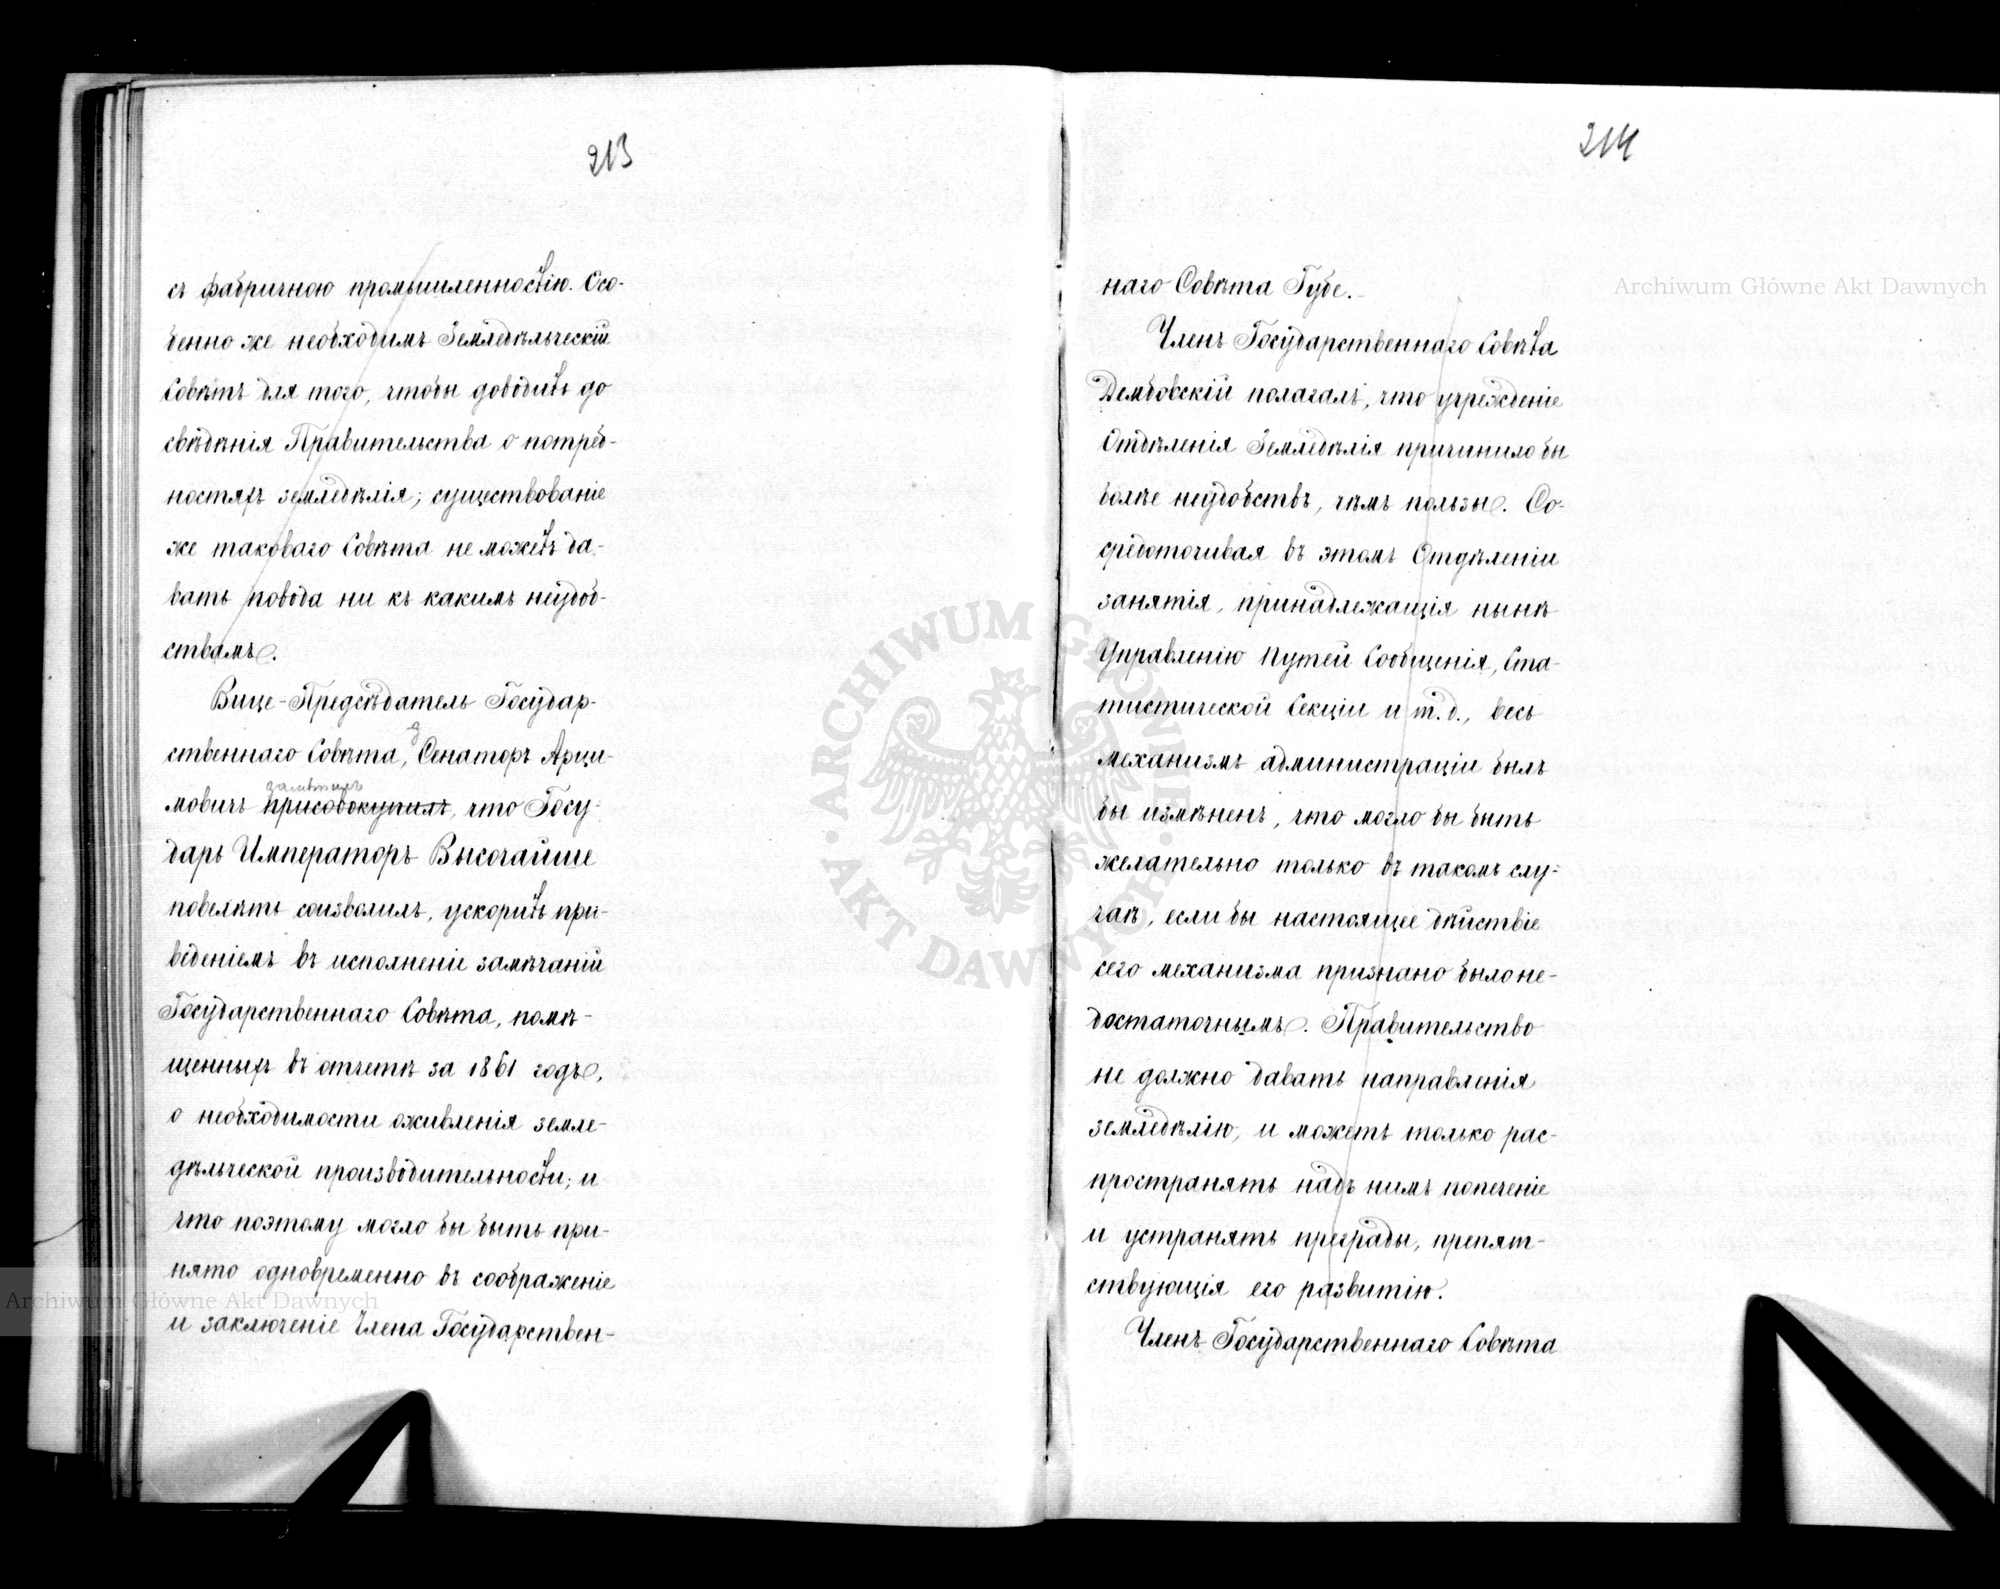 213
съ фабричною промышленностію. Осо-
бенно же необходимъ Земледѣльческій
Совѣтъ для того, чтобы доводить до
свѣдѣнія Правительства о потреб-
ностяхъ земледѣлія; существованіе
же таковаго Совѣта не можетъ да-
вать повода ни къ какимъ неудоб-
ствамъ.
Вице-Предсѣдатель Государ-
ственнаго Совѣта, Сенаторъ Арци-
замѣтилъ
мовичъ присовокупилъ, что Госу-
дарь Императоръ Высочайше
повелѣть соизволилъ, ускорить при-
веденіемъ въ исполненіе замѣчаній
Государственнаго Совѣта, помѣ-
щенныхъ въ отчетѣ за 1861 годъ,
о необходимости оживленія земле-
дѣльческой производительности; и
что поэтому могло бы быть при-
нято одновременно въ соображеніе
и заключеніе Члена Государствен-
214
наго Совѣта Губе.
Членъ Государственнаго Совѣта
Дембовскій полагалъ, что учрежденіе
Отдѣленія Земледѣлія причинило бы
болѣе неудобствъ, чѣмъ пользы. Со-
средоточивая въ этомъ Отдѣленіи
занятія, принадлежащія нынѣ
Управленію Путей Сообщенія, Ста-
тистической Секціи и т.д., весь
механизмъ администраціи былъ
бы измѣненъ, что могло бы быть
желательно только въ такомъ слу-
чаѣ, если бы настоящее дѣйствіе
сего механизма признано было не-
достаточнымъ. Правительство
не должно давать направленія
земледѣлію, и можетъ только рас-
пространять надъ нимъ попеченіе
и устранять преграды, препят-
ствующія его развитію.
Членъ Государственнаго Совѣта
Archiwum Główne Akt Dawnych
ARCHIWUM GŁÓWNE AKT DAWNYCH
Archiwum Główne Akt Dawnych